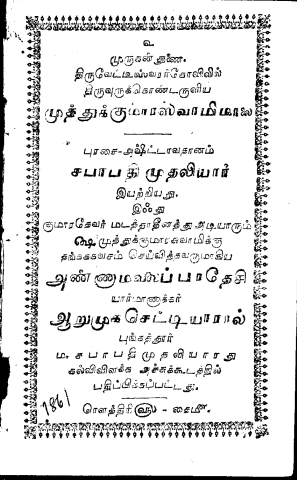 உ
முருகன் துணை.
திருவேட்டீஸ்வரர்கோவிலில்
திருவுருக்கொண்டருளிய
முத்துக்குமாரஸ்வாமிமாலை
புரசை-அஷ்டாவதானம்
சபாபதி முதலியார்
இயற்றியது.
இஃது
குமாரதேவர் மடத்தாதீனத்து அடியாரும்
ஷை முத்துக்குமாரசுவாமிக்கு
தங்கக்கவசம் செய்வித்தவருமாகிய
அண்ணாமலைப்பாதேசி
யார்மாணாக்கர்
ஆறுமுகசெட்டியாரால்
புங்கத்தூர்
ம. சபாபதி முதலியாரது
கல்விவிளக்க அச்சுக்கூடத்தில்
பதிப்பிக்கப்பட்டது.
ரௌத்திரி௵ - தைமீ.
1861